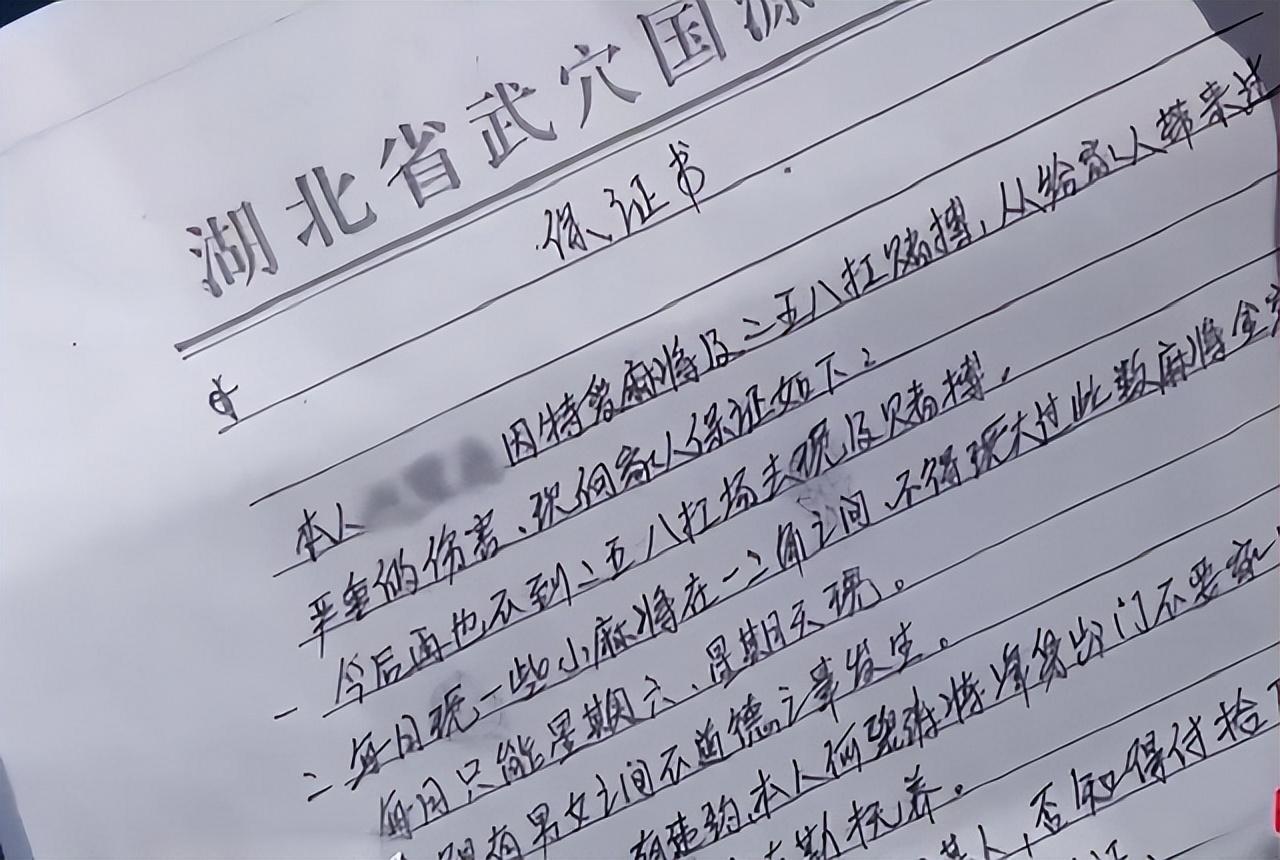 湖北省武穴国源
保证书
本人 因特爱麻将及二五八扛赌搏，从给家人带来过
严重的伤害、现向家人保证如下：
一 今后再也不到二五八扛场去玩及赌搏.
二 每日玩一些小麻将在一二角之间、不得玩大过此数麻将金
每日只能星期六、星期天玩。
有男女之间不道德之事发生。
有违约、本人何 将 出门不要家
抚养。
人，否则得付给